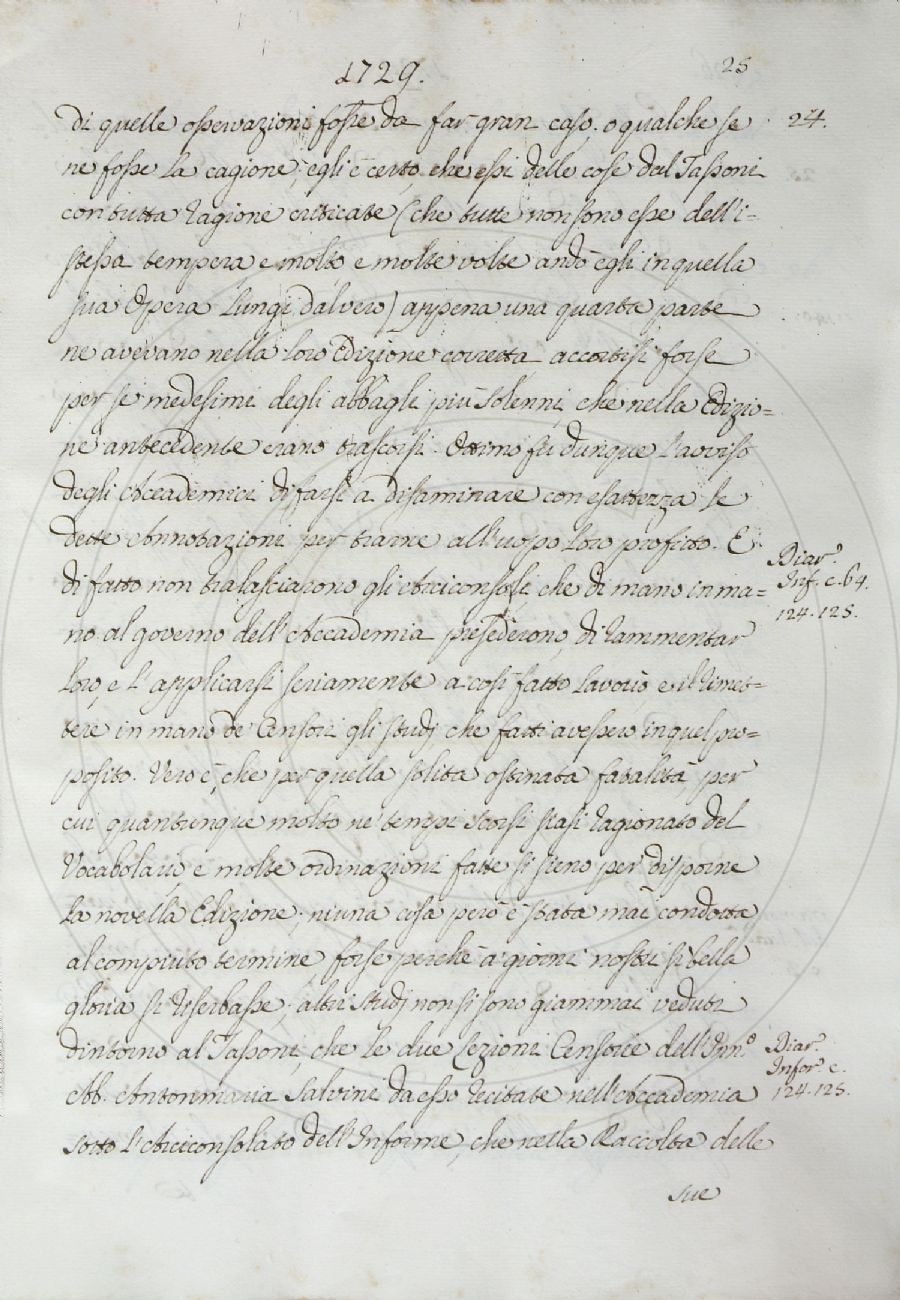 1729.
25
di quelle osservazioni fosse da far gran caso. o qualche se
24.
ne fosse la cagione; egli è certo, che essi delle cose dal Tassoni
con tutta ragione criticate (che tutte non sono esse dell'i=
stessa tempera e molto e molte volte andò egli in quella
sua Opera lungi dal vero) appena una quarta parte
ne avevano nella loro Edizione corretta, accortisi forse
per se medesimi degli abbagli più solenni, che nella Edizio=
ne antecedente erano trascorsi. Ottimo fu dunque l'avviso
degli Accademici di farsi a disaminare con esattezza le
dette Annotazioni per trarne all'uopo loro profitto. E
di fatto non tralasciarono gli Arciconsoli, che di mano in ma=
no al governo dell'Accademia presederono, di rammentar
loro, e l'applicarsi seriamente a così fatto lavoro, e il rimet=
tere in mano de' Censori gli studj che fatti avessero in quel pro=
posito. Vero è, che per quella solita ostinata fatalità, per
cui quantunque molto ne' tempi scorsi siasi ragionato del
Vocabolario, e molte ordinazioni fatte si sieno per disporne
la novella Edizione, niuna cosa però è stata mai condotta
al compiuto termine, forse perchè a' giorni nostri sì bella
gloria si riserbasse; altri studj non si sono giammai veduti
dintorno al Tassoni, che le due Lezioni Censorie dell'Inn.º
Ab. Antonmaria Salvini da esso recitate nell'Accademia
sotto l'Arciconsolato dell'Informe, che nella Raccolta delle
sue
Diar.º
Inf. c. 64.
124. 125.
Diar.º
Infor.e c.
124. 125.